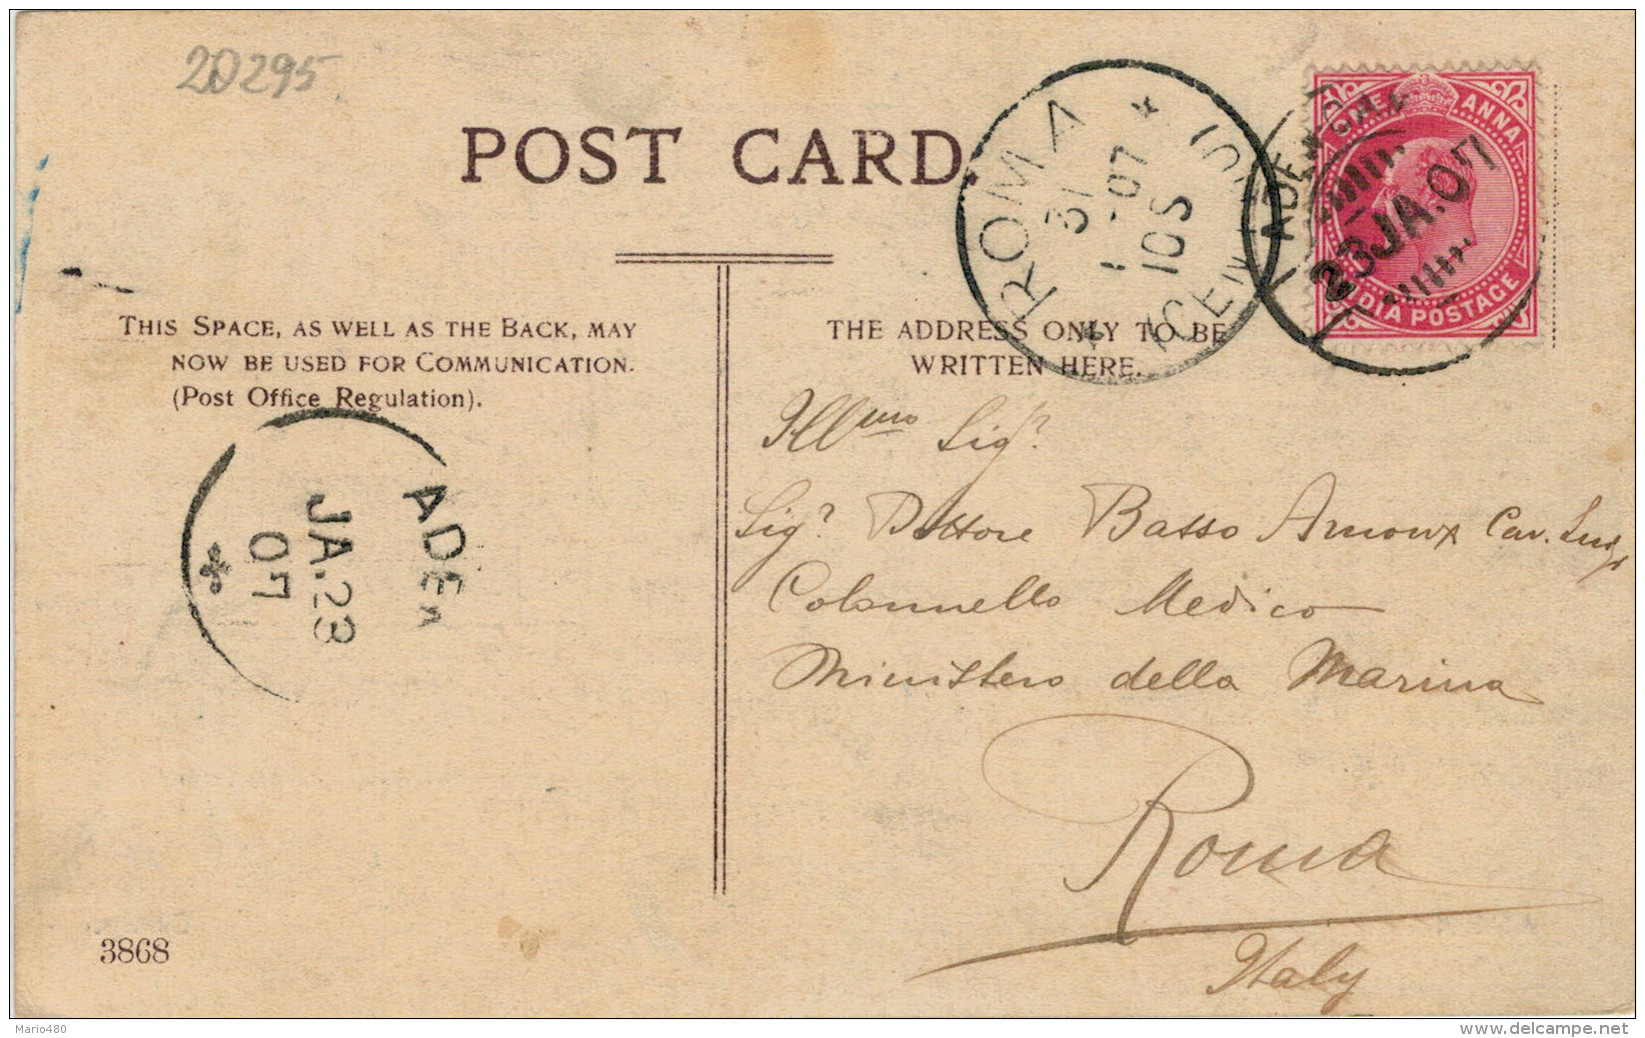 20295
POST CARD.
ROMA
31
1-07
10S
*
ADEN
23 JA.07
ONE ANNA
INDIA POSTAGE
THIS SPACE, AS WELL AS THE BACK, MAY
NOW BE USED FOR COMMUNICATION.
(Post Office Regulation).
THE ADDRESS ONLY TO BE
WRITTEN HERE.
ADEN
JA.23
07
Illmo Sigr
Sigr Dottore Basso Arnoux Cav. Luigi
Colonnello Medico
Ministero della Marina
Roma
Italy
3868
Mario480
www.delcampe.net